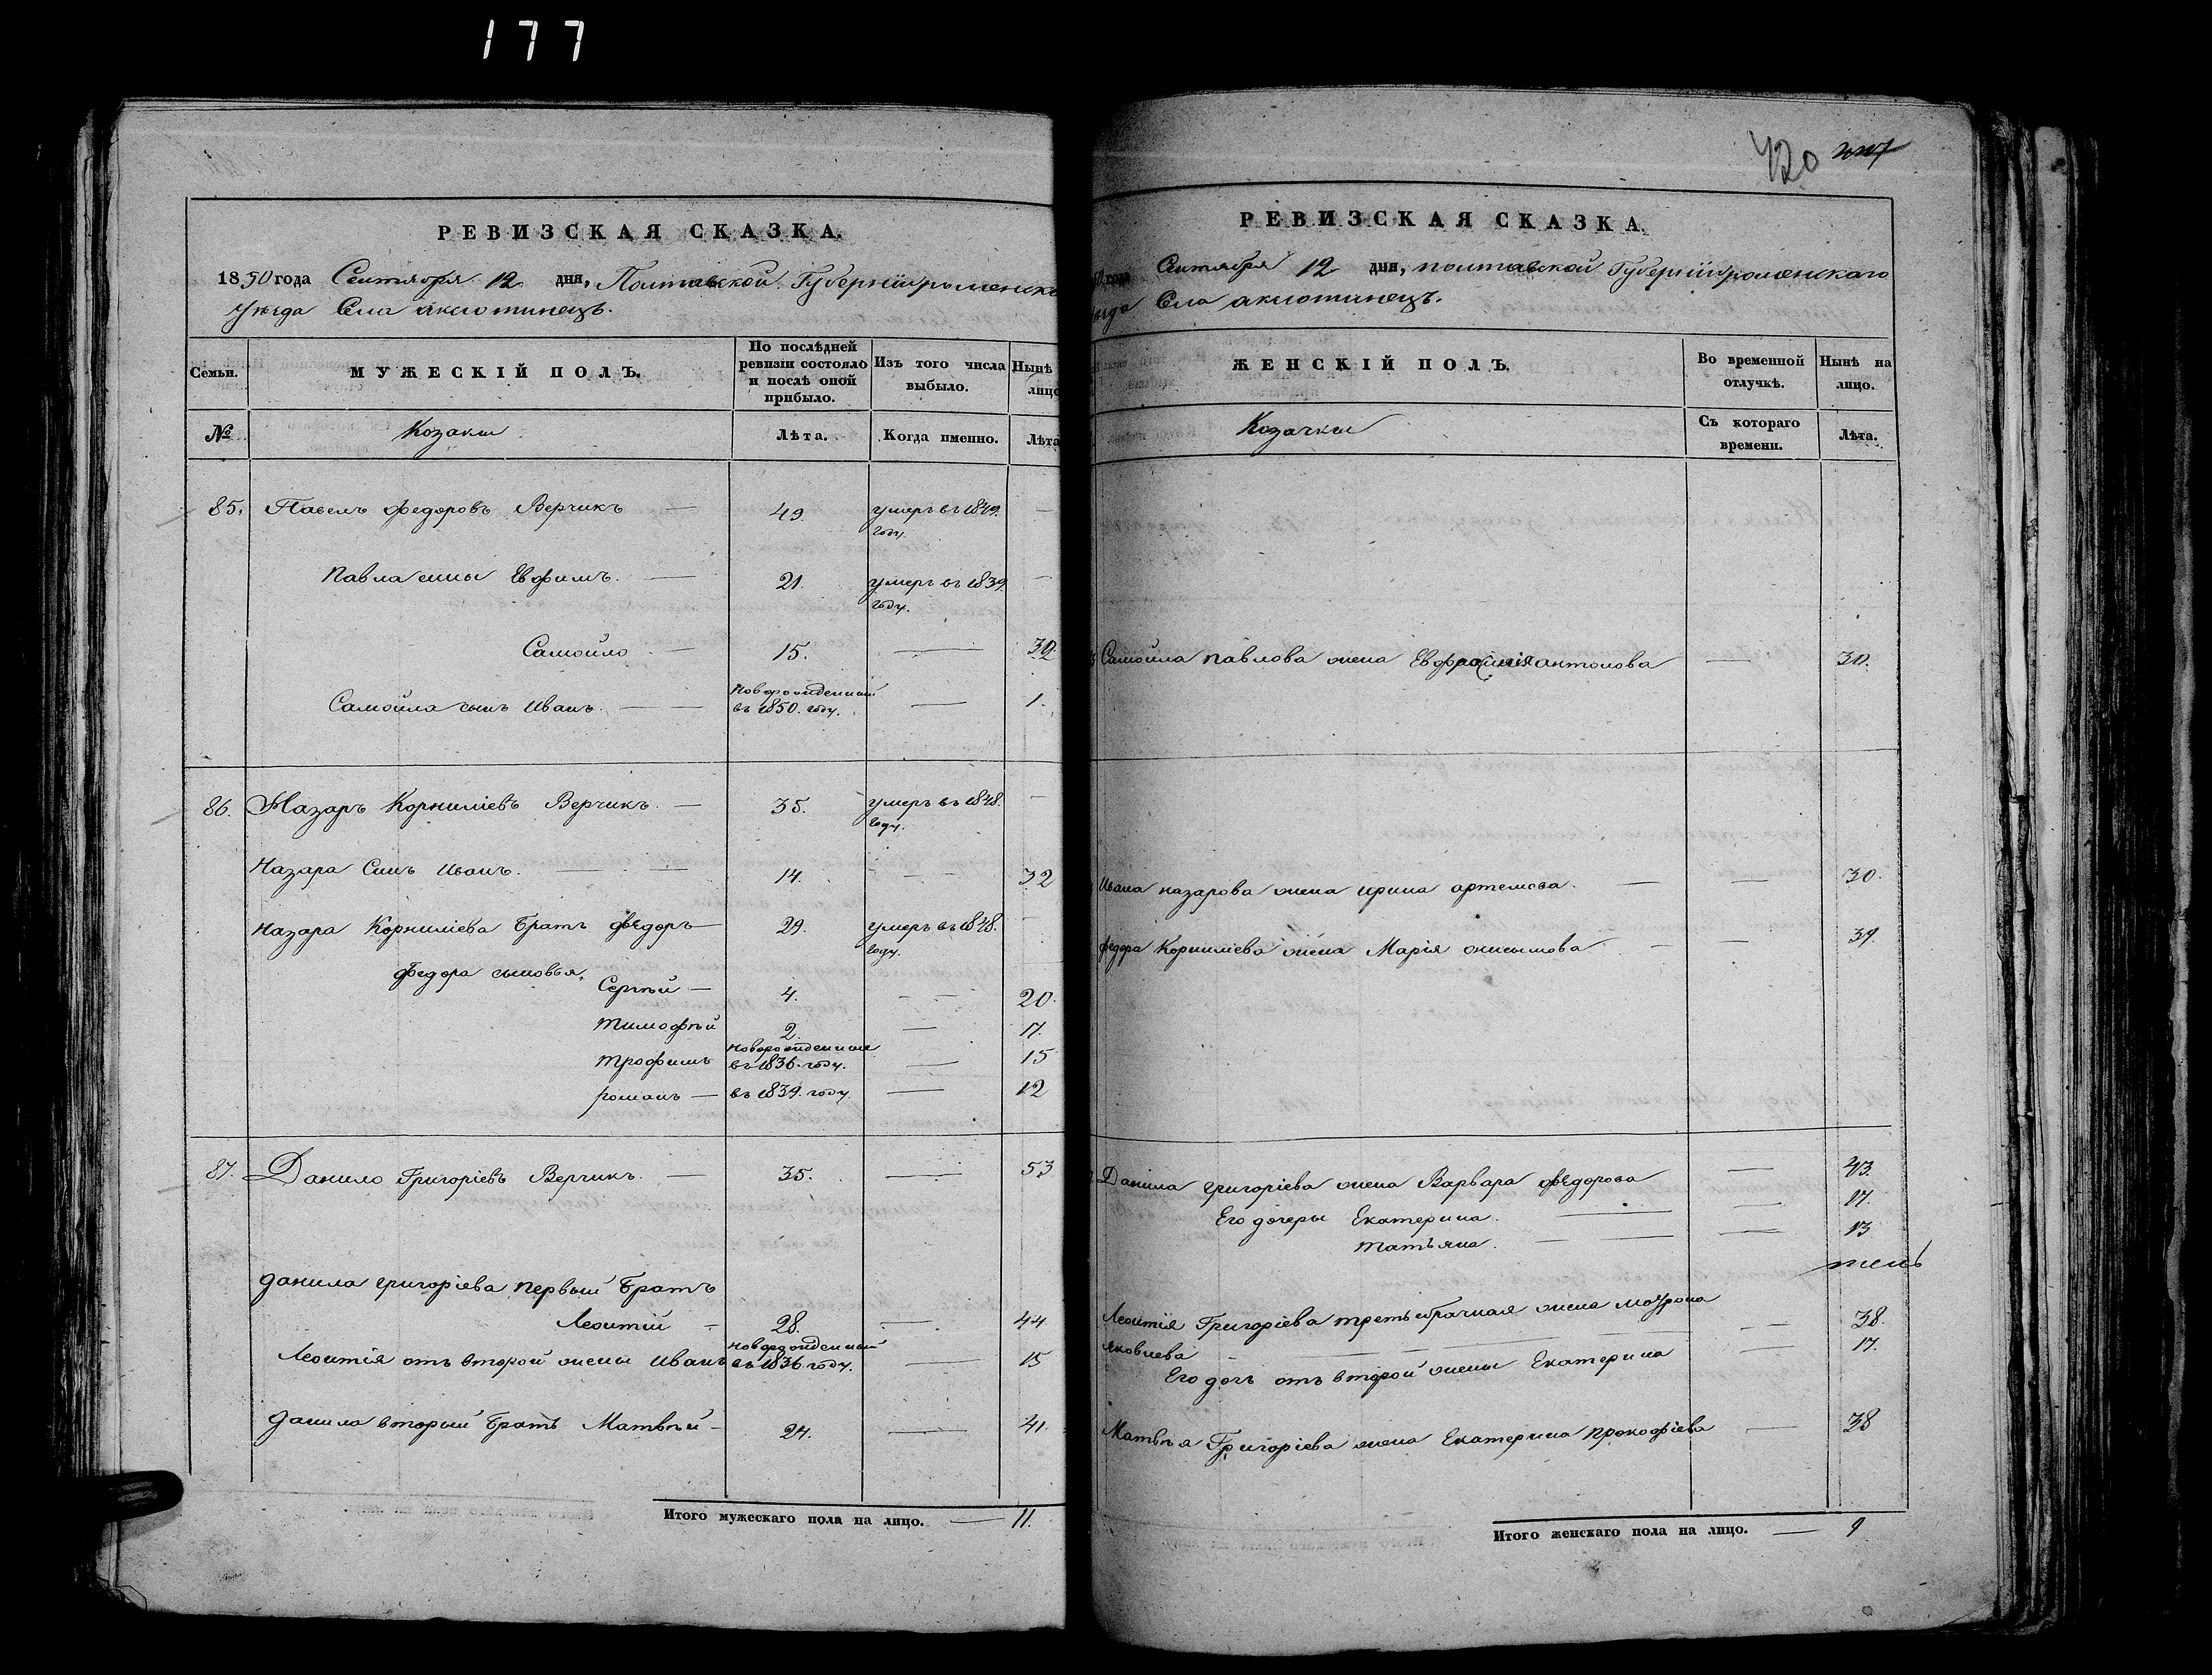 177
РЕВИЗСКАЯ СКАЗКА.
1850 года Сентября 12 дня, Полтавской Губернiи роменско
Уѣзда Села аксютинецъ.
Семьи.
МУЖЕСКІЙ ПОЛЪ.
По послѣдней ревизіи состояло и послѣ оной прибыло.
Изъ того числа выбыло.
Нынѣ лицо
№
Козаки
Лѣта.
Когда именно.
Лѣта
85. Павелъ федоровъ Верчикъ — 49. умеръ въ 1849. году. —
Павла сыны Евфимъ. — 21. умеръ въ 1839. году. —
Самойло — 15. — 32
Самойла сынъ Иванъ. — — Новорожденный въ 1850. году. — 1.
86. Назаръ Корнилiевъ Верчикъ — 35. умеръ въ 1848. году. —
Назара Сынъ Иванъ. — — 14. — — 32
Назара Корнилiева Братъ федоръ — 29. умеръ въ 1848. году. —
Федора сыновья, Сергѣй — 4. — — 20.
тимофѣй 2. — 17.
трофимъ новорожденные въ 1836. году. — 15
романъ — въ 1839. году. — 12
87. Данило Григорiевъ Верчикъ. — 35. — 53
данила григорiева первый Братъ
Леонтiй — 28. — 44
Леонтiя отъ второй жены Иванъ новорожденный въ 1836 году. — 15
данила вторый Братъ Матвѣй — 24. — 41.
Итого мужескаго пола на лицо. — 11.
420
РЕВИЗСКАЯ СКАЗКА.
года Сентября 12 дня, полтавской Губернiи роменскаго
Села аксютинецъ.
ЖЕНСКІЙ ПОЛЪ.
Во временной отлучкѣ.
Нынѣ на лицо.
Козачки
Съ котораго времени.
Лѣта.
Самойла павлова жена Евфросинiя антонова — 30.
Ивана назарова жена ирина артемова. — — 30.
федора Корнилiева жена Марiя онисимова — — 39.
Данила григорiева жена Варвара федорова — 43.
Его дочеры Екатерина. — — 17.
татьяна. — — — 13
Леонтiя Григорiева третьебрачная жена моѵрона — 38.
яковлева — — — —
Его дочь отъ второй жены Екатерина — 17.
Матвѣя Григорiева жена Екатерина прокофiева — 38
Итого женскаго пола на лицо. — 9